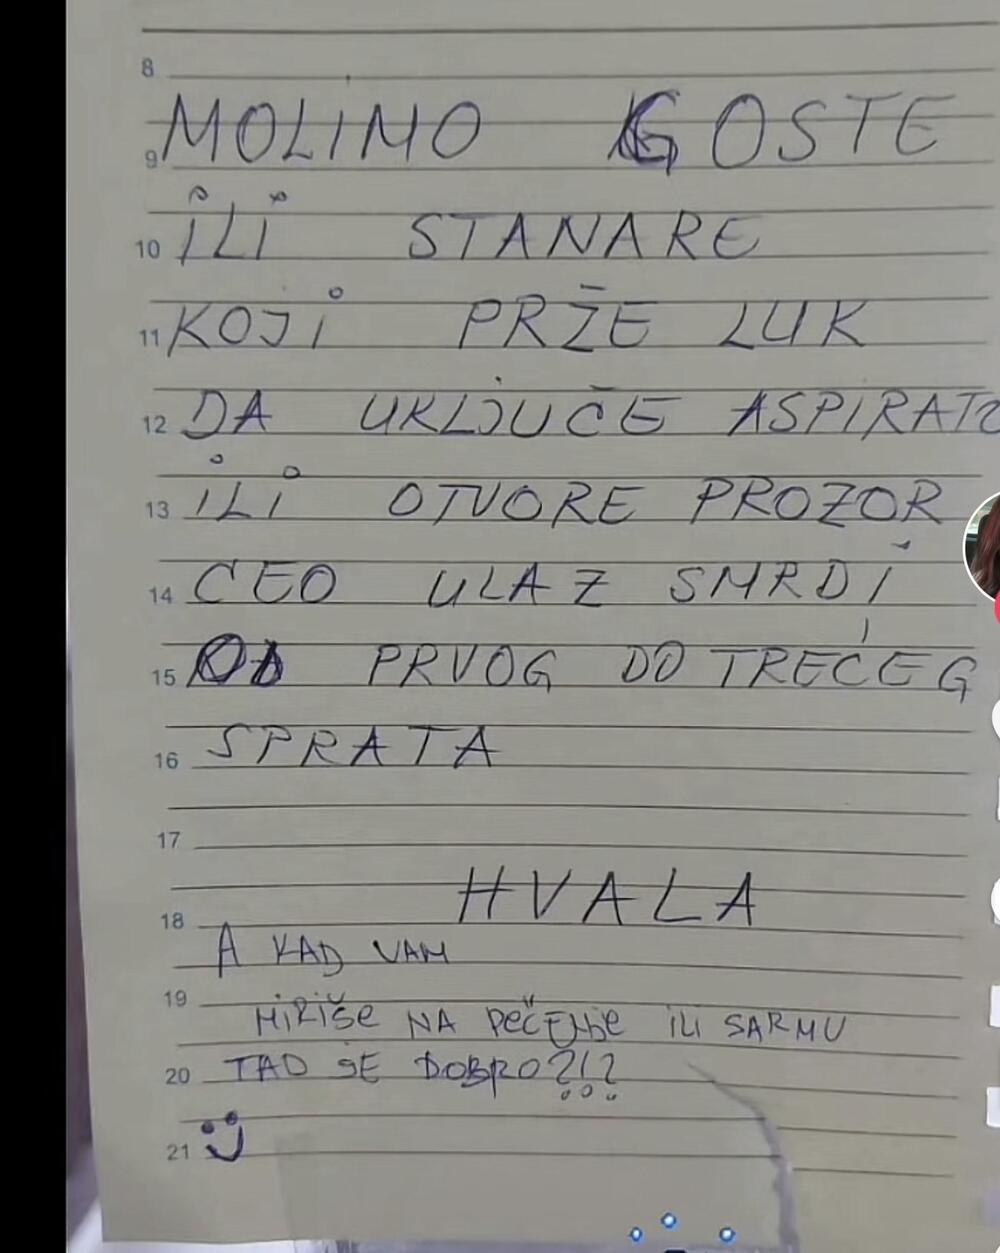 8
MOLIMO GOSTE
9
ILI STANARE
10
KOJI PRŽE LUK
11
DA UKLJUČE ASPIRATO
12
ILI OTVORE PROZOR
13
CEO ULAZ SMRDI
14
OD PRVOG DO TREĆEG
15
SPRATA
16
17
HVALA
18
A KAD VAM
19
MIRIŠE NA PEČENJE ILI SARMU
20
TAD JE DOBRO?!?
21